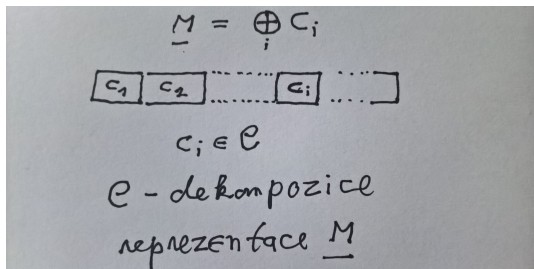 M = ⊕ C_i
i
C_1 C_2 ........ C_i .....
C_i ∈ C
C - dekompozice
reprezentace M